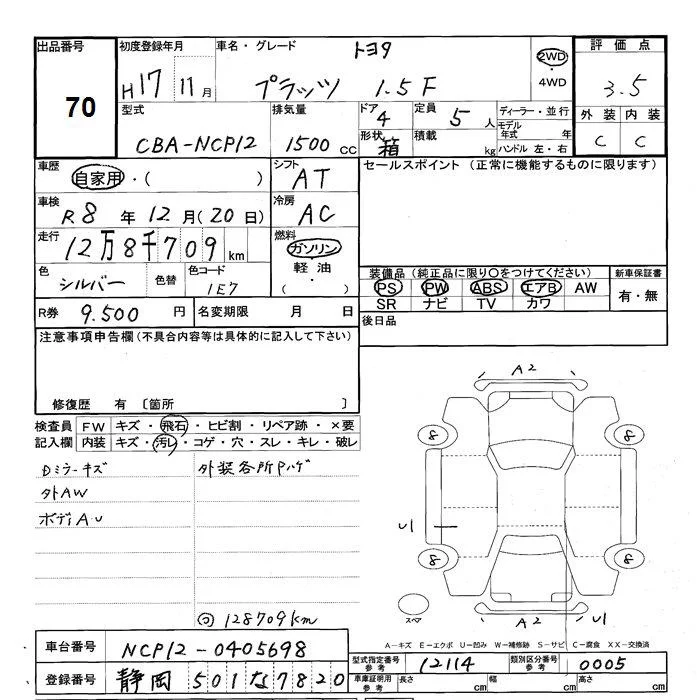 出品番号 初度登録年月 車名・グレード トヨタ 評価点
70 H17 11月 プラッツ 1.5F 2WD ・4WD 3.5
型式 排気量 ドア 4 定員 5人 ディーラー・並行 外装 内装
CBA-NCP12 1500cc 形状 箱 積載 kg モデル年式 年 ハンドル 左・右 C C
車歴 自家用・( ) シフト AT セールスポイント (正常に機能するものに限ります)
車検 R8年12月(20日) 冷房 AC
走行 12万8千709km 燃料 ガソリン
軽油・( )
色 シルバー 色替 色コード 1E7
装備品(純正品に限り○をつけてください) 新車保証書
PS PW ABS エアB AW 有・無
SR ナビ TV カワ
R券 9.500円 名変期限 月 日 後日品
注意事項申告欄(不具合内容等は具体的に記入して下さい)
修復歴 有 〔箇所 〕
検査員 FW キズ・飛石・ヒビ割・リペア跡・×要
記入欄 内装 キズ・汚レ・コゲ・穴・スレ・キレ・破レ
Dミラーキズ 外装各所Pハゲ
外AW
ボディA・U
128709km
A2
8 8
U1
8 8
スペア A2 U1
A-キズ E-エクボ U-凹み W-補修跡 S-サビ C-腐食 XX-交換済
車台番号 NCP12-0405698 型式指定番号 参考 12114 類別区分番号 参考 0005
登録番号 静岡 501 な 7820 車庫証明用 参考 長さ cm 幅 cm 高さ cm